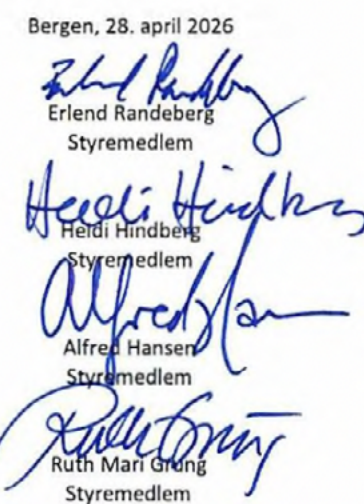 Bergen, 28. april 2026
Erlend Randeberg
Erlend Randeberg
Styremedlem
Heidi Hindberg
Heidi Hindberg
Styremedlem
Alfred Hansen
Styremedlem
Ruth Grung
Ruth Mari Grung
Styremedlem